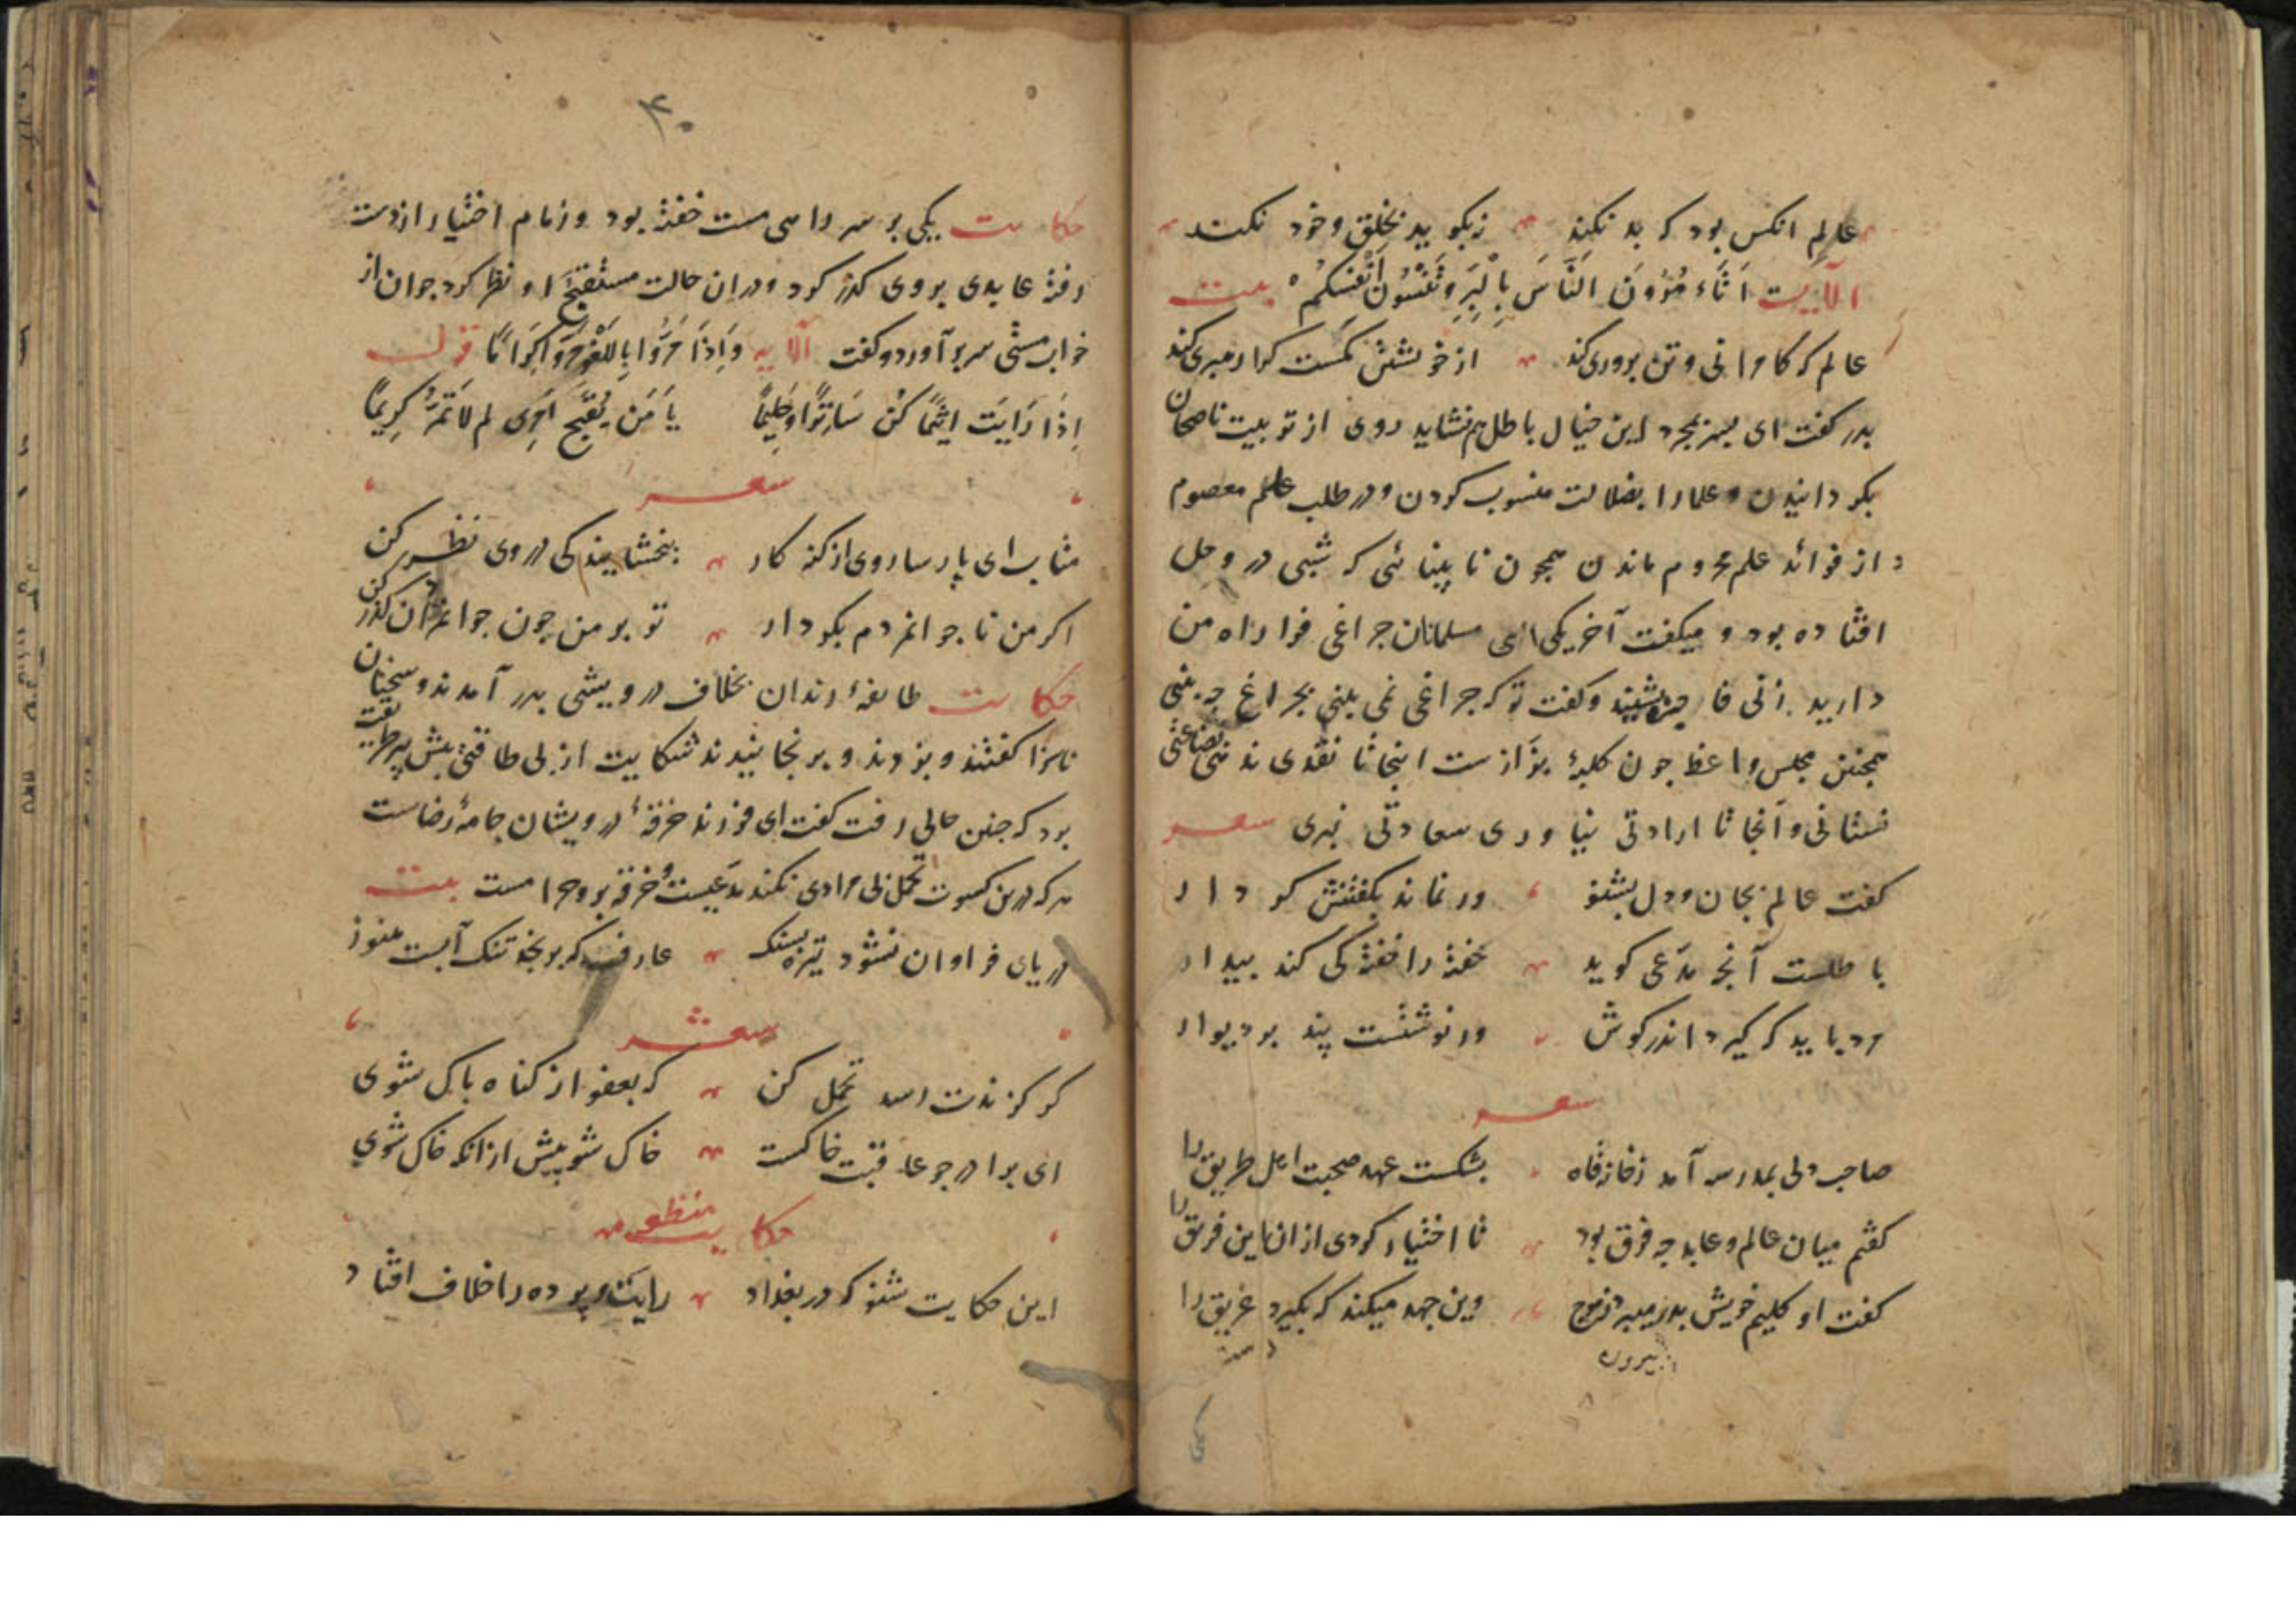 عالم انکس بود که بد نکند نه بگوید بخلق و خود نکند
الآیت اَتَاءمُرُونَ النَّاسَ بِالْبِرِّ وَتَنْسَوْنَ اَنْفُسَکُمْ بیت
عالم که کامرانی و تن پروری کند از خویشتن کمست کرا رهبری کند
پدر کفت ای پسر بمجرد این خیال باطل هم نشاید روی از تربیت ناصحان
بگردانیدن و علما را بضلالت منسوب کردن و در طلب علم معصوم
از فوائد علم محروم ماندن همچون نابینائی که شبی در وحل
افتاده بود و میکفت آخر یکی ای مسلمانان جراغی فرا راه من
دارید زنی فاجره بشنید و کفت تو که جراغی نمی بینی بجراغ جه بینی
همجنین مجلس واعظ جون کلبهٔ بزّازست اینجا تا نقدی ندهی بضاعتی
نستانی و آنجا تا ارادتی نیاوری سعادتی نبری شعر
کفت عالم بجان و دل بشنو ور نماند بکفتنش کردار
باطلست آنجه مدّعی کوید خفته را خفته کی کند بیدار
مرد باید که کیرد اندر کوش ور نوشتست پند بر دیوار
شعر
صاحب دلی بمدرسه آمد ز خانقاه بشکست عهد صحبت اهل طریق را
کفتم میان عالم و عابد جه فرق بود تا اختیار کردی ازان این فریق را
کفت او کلیم خویش بدر میبرد ز موج وین جهد میکند که بکیرد غریق را
بیرون
۴۰
حکایت یکی بر سر راهی مست خفته بود و زمام اختیار از دست
رفته عابدی بر وی کذر کرد و دران حالت مستقبح او نظر کرد جوان از
خواب مستی سر برآورد و کفت الآیه وَاِذَا مَرُّوا بِاللَّغْوِ مَرُّوا کِرَامًا قوله
اِذَا رَاَیْتَ اَثِیمًا کُنْ سَاتِرًا وَحَلِیمًا یَا مَنْ یُقَبِّحُ اَمْرِی لِمَ لَا تَمُرُّ کَرِیمًا
شعر
متاب ای پارسا روی از کنه کار ببخشایندکی در وی نظر کن
اکر من ناجوانمردم بکردار تو بر من چون جوانمردان کذر کن
حکایت طایفهٔ رندان بخلاف درویشی بدر آمدند و سخنان
ناسزا کفتند و بزدند و برنجانیدند شکایت از بی طاقتی پیش پیر طریقت
برد که جنین حالی رفت کفت ای فرزند خرقهٔ درویشان جامهٔ رضاست
هر که درین کسوت تحمل بی مرادی نکند مدّعیست و خرقه برو حرامست بیت
دریای فراوان نشود تیره بسنک عارف که برنجد تنک آبست هنوز
شعر
کر کزندت رسد تحمل کن که بعفو از کناه پاک شوی
ای برادر جو عاقبت خاکست خاک شو پیش ازانکه خاک شوی
حکایت منظومه
این حکایت شنو که در بغداد رایت و پرده را خلاف افتاد